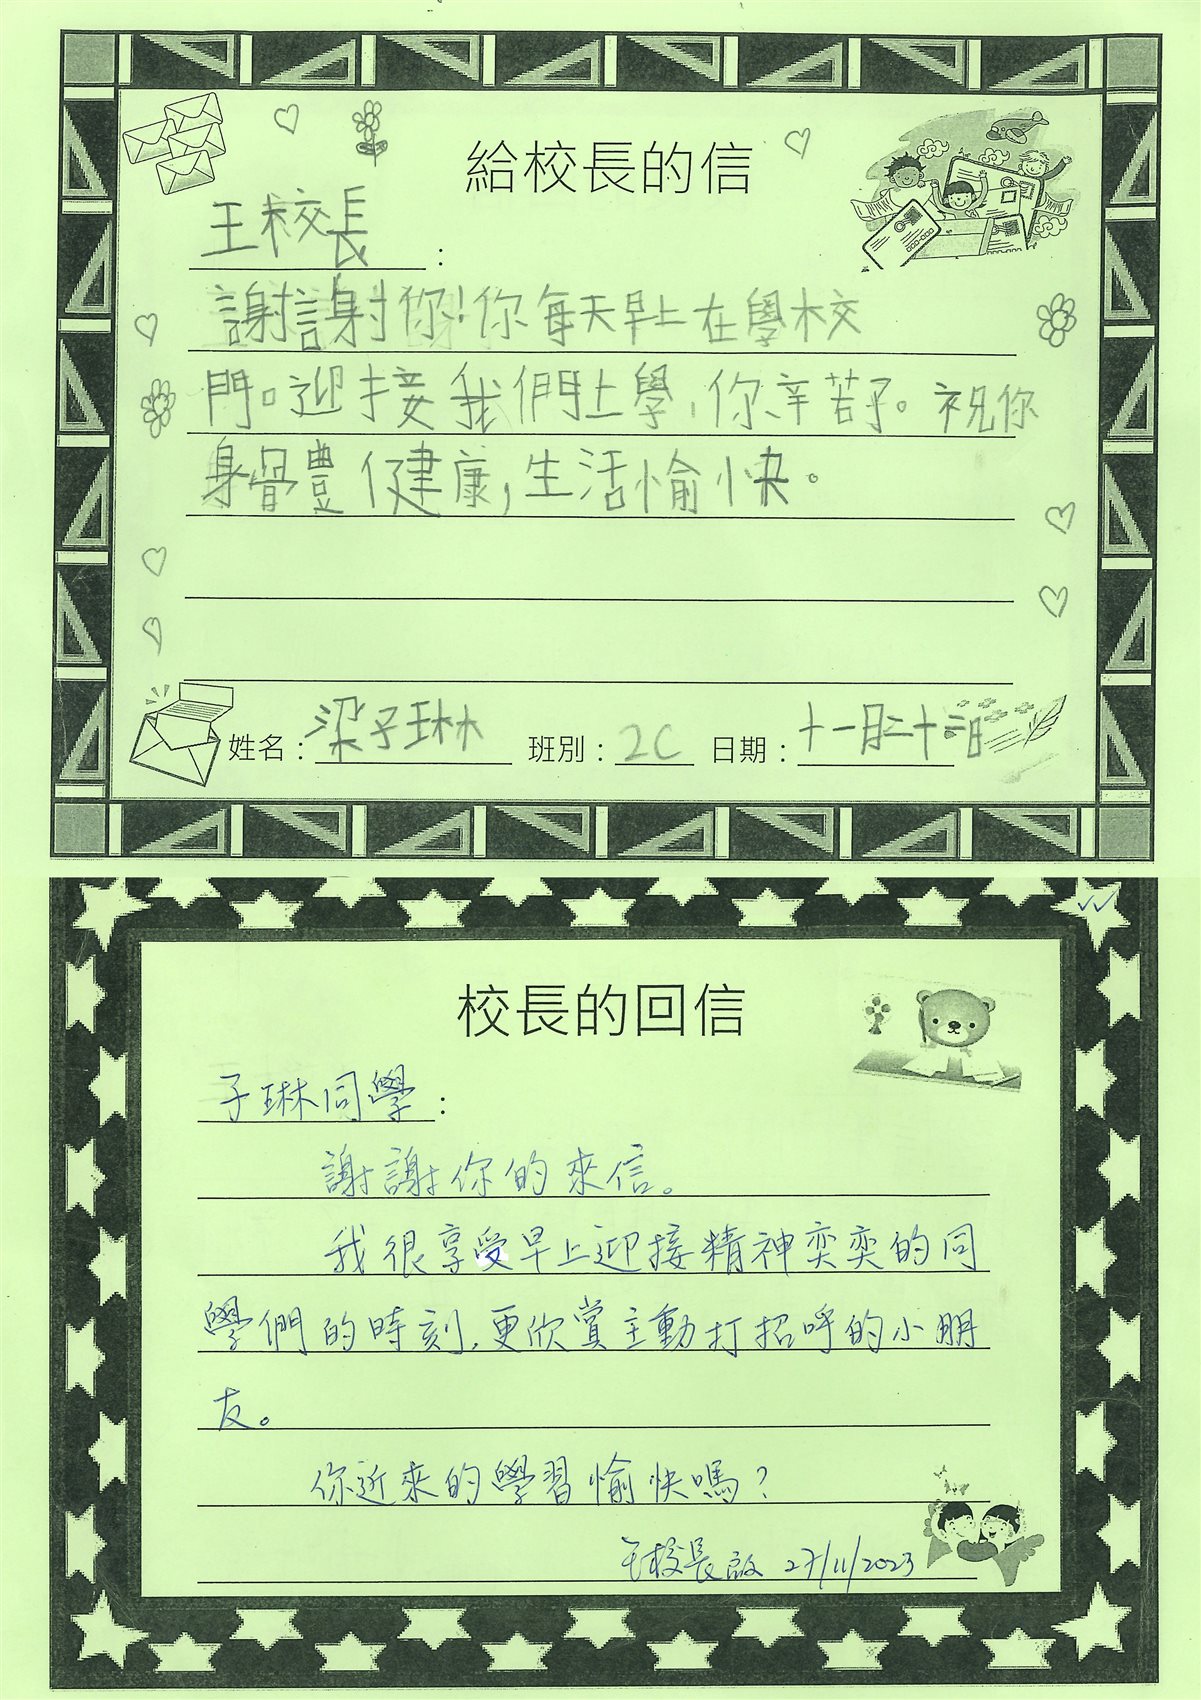 給校長的信
王校長：
謝謝你!你每天早上在學校
門口迎接我們上學,你辛苦了。祝你
身體健康,生活愉快。
姓名：梁子琳 班別：2C 日期：十一月二十二日
校長的回信
子琳同學：
謝謝你的來信。
我很享受早上迎接精神奕奕的同
學們的時刻,更欣賞主動打招呼的小朋
友。
你近來的學習愉快嗎?
王校長啟 27/11/2023